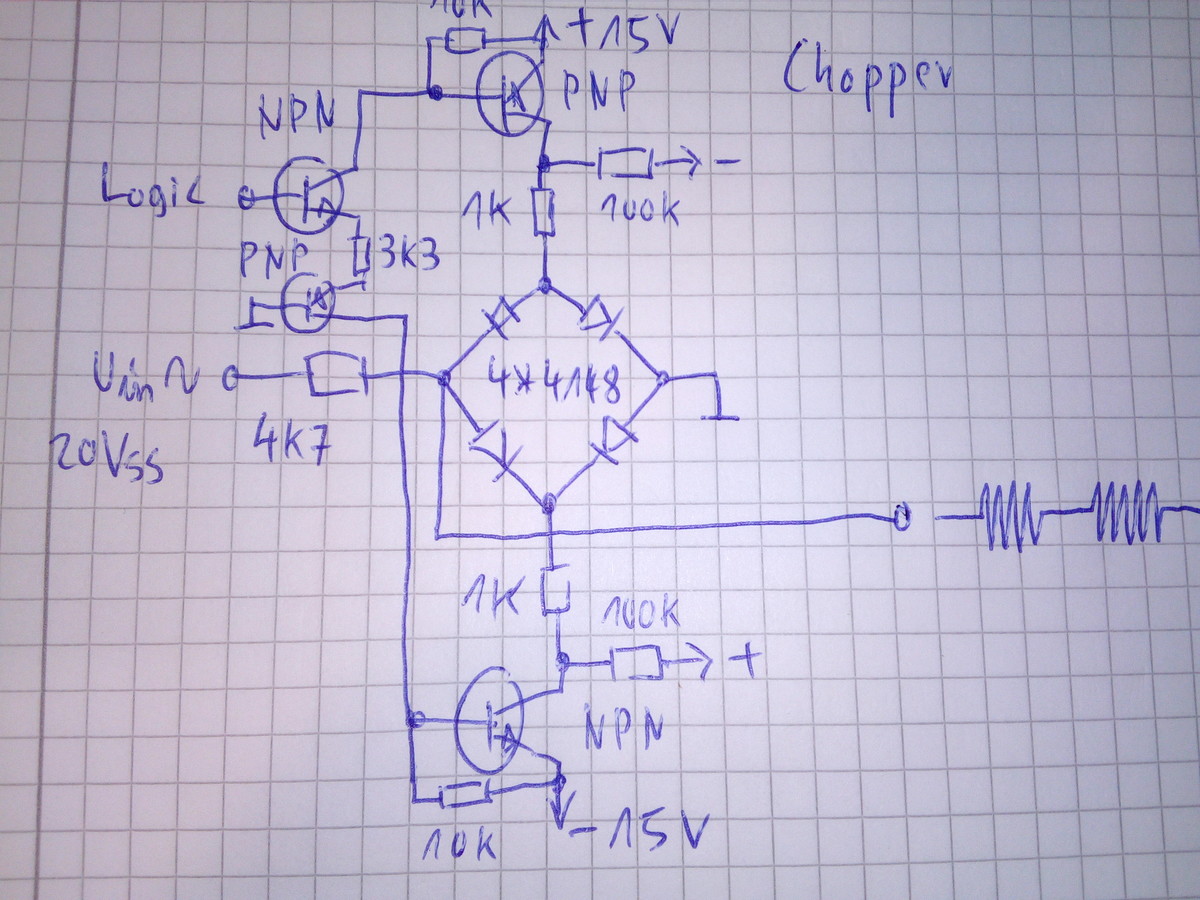 10K
+15V
Chopper
NPN
PNP
Logic
-
1K
100K
PNP
3K3
Uin ~
4*4148
20Vss
4K7
1K
100K
+
NPN
10K
-15V